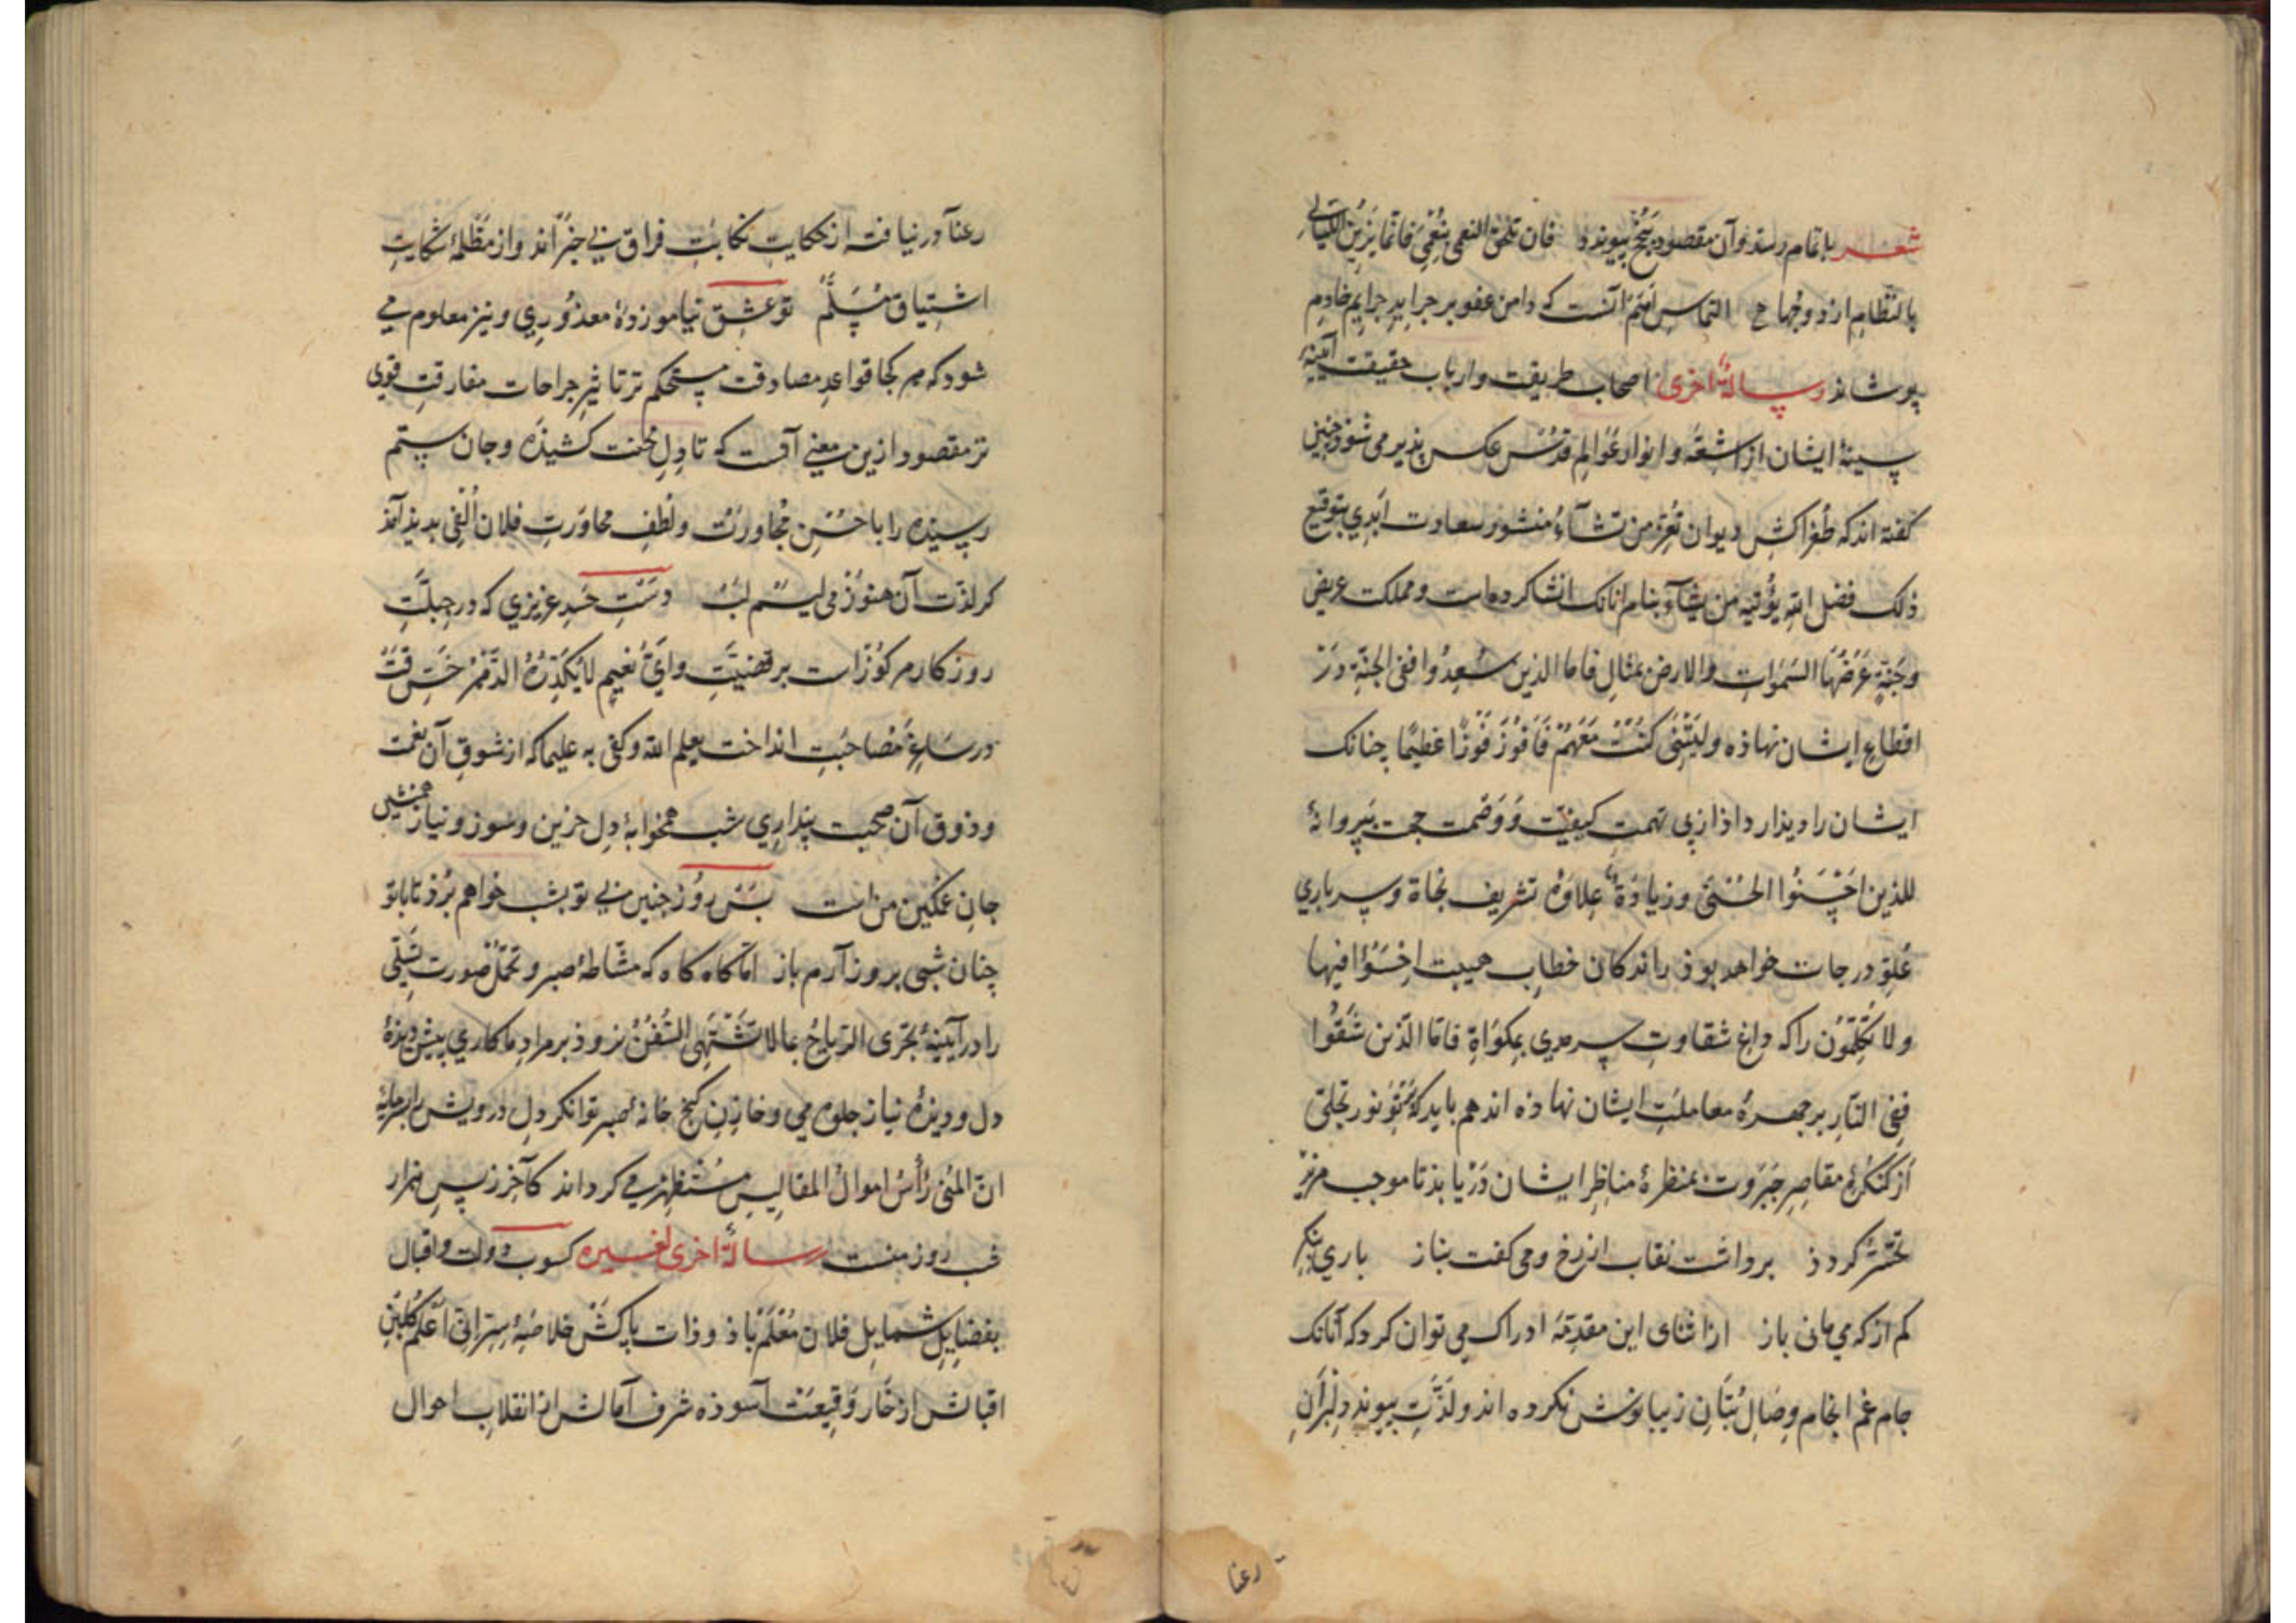 شعر باتمام رسد و آن مقصود بنجح پیوندد فان تلحق النعمی بنعمی فانما یزین اللیالی
بالنظام ازدوجها التماس آنست که دامن عفو بر جراید جرایم خادم
پوشاند رسالة اخری اصحاب طریقت و ارباب حقیقت آیینهٔ
سینهٔ ایشان از اشعهٔ و انوار عوالم قدس عکس پذیر می شود چنین
کفته اند که طغراکش دیوان تعز من تشآء منشور سعادت ابدی بتوقیع
ذلک فضل الله یؤتیه من یشآء بنام انانک انشا کرده است و مملکت عریض
و جنة عرضها السموات والارض بمثال فاما الذین سعدوا ففی الجنة در
اقطاع ایشان نهاذه و لیتنی کنت معهم فافوز فوزا عظیما چنانک
ایشان را دیدار داذ از پی تهمت کیفیت و وصمت پروانهٔ
للذین احسنوا الحسنی و زیادة علاوهٔ تشریف نجاة و سرباری
علو درجات خواهد بوذ راندکان خطاب هیبت اخسؤا فیها
ولا تکلمون را که داغ شقاوت سرمدی بمکواة فاما الذین شقوا
ففی النار بر چهرهٔ معاملت ایشان نهاذه اند هم باید که پرتو نور تجلی
از کنکرهٔ مقاصر جبروت بمنظرهٔ مناظر ایشان دریابذ تا موجب مزید
تحسر کردذ برداشت نقاب از رخ و می کفت بناز باری بنکر
کم از که می مانی باز از اثنای این مقدمه ادراک می توان کرد که آنانک
جام غم انجام وصال بتان زیبا نوش نکرده اند و لذت پیوند دلبران
رعنا
رعنا درنیافته از حکایت نکایت فراق بی خبراند و از مظلمهٔ شکایت
اشتیاق مسلم تو عشق نیاموزدهٔ معذوری و نیز معلوم می
شود که هر کجا قواعد مصادقت مستحکم تر تاثیر جراحات مفارقت قوی
تر مقصود ازین معنی آنست که تا دل محنت کشیذه و جان ستم
رسیذه را با حسن مجاورت و لطف محاورت فلان الفی بدید آمذ
کر لذت آن هنوز می لیسم لب دست حسد عزیزی که در جبلت
روزکار مرکوزاست بر قضیت و ای نعیم لایکدره الدهر خس فرقت
در ساغر مصاحبت انداخت یعلم الله و کفی به علیما که از شوق آن نعمت
و ذوق آن صحبت بیداری شب همخوابهٔ دل حزین و سوز و نیاز همنشین
جان غمکین من است بس روز چنین بی تو بشب خواهم برذ تا باتو
چنان شبی بروز آرم باز اما کاه کاه که مشاطهٔ صبر و تحمل صورت تسلی
را در آیینهٔ تجری الریاح بما لا تشتهی السفن نرود بر مراد ما کاری پیش دیذهٔ
دل و دیذهٔ نیاز جلوه می و خازن کنج خانهٔ صبر توانکر دل درویش را بسرمایهٔ
ان المنی رأس اموال المفالیس مستظهر می کرداند کآخر ز پس هزار
شب روز منست رسالة اخری لغیره کسوت دولت و اقبال
بفضایل شمایل فلان معلم باذ و ذات پاکش خلاصهٔ سر انی اعلم کلبن
اقبالش از خار وقیعت آسوذه شرف آمالش از انقلاب احوال